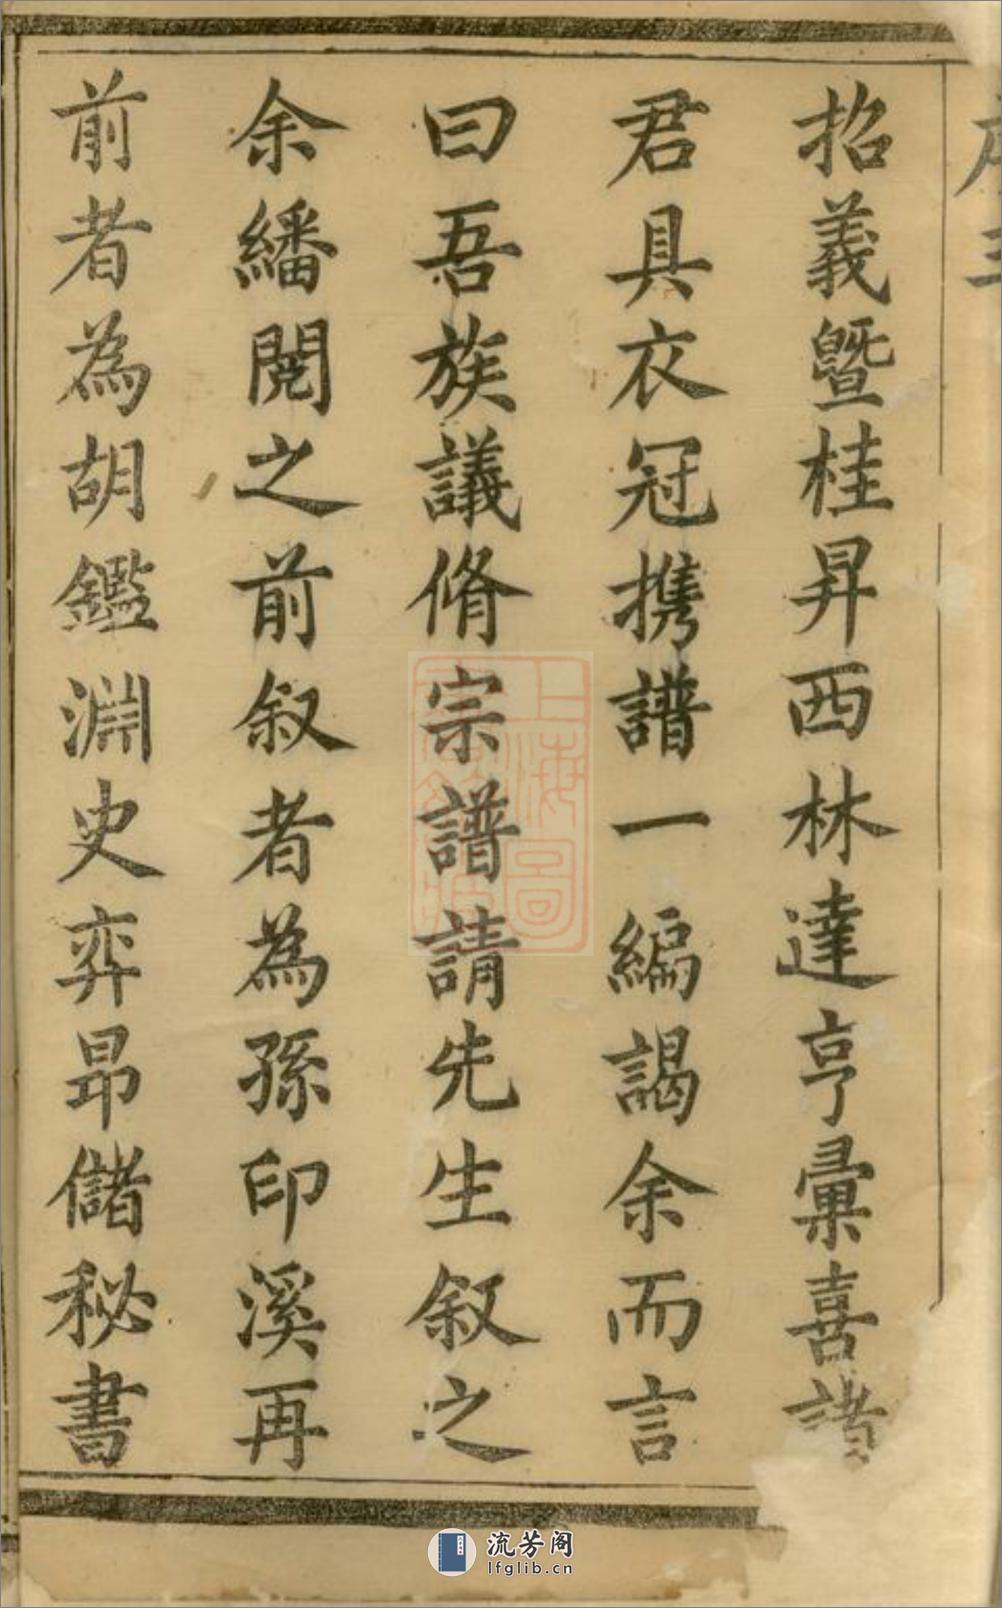 招義曁桂昇西林達亨彙喜讃
君具衣冠携譜一編謁余而言
曰吾族議脩宗譜請先生叙之
余繙閱之前叙者為孫印溪再
前者為胡鑑淵史弈昻儲秘書
上海圖
流芳阁
lfglib.cn